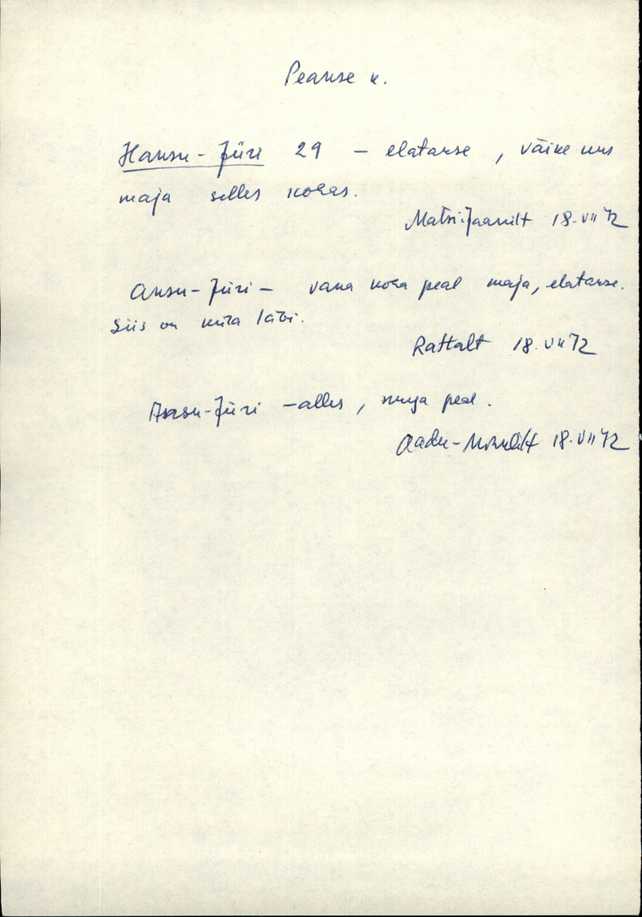 Peanse k.
Hansu-Jüri 29 – elatakse, väike uus
maja selles kohas.
Matsi-Jaanilt 18.VII 72
Ansu-Jüri – vana koha peal maja, elatakse.
Siis on küla läbi.
Rattalt 18.VII 72
Ansu-Jüri – alles, müüja peal.
Aadu-Mihklilt 18.VII 72